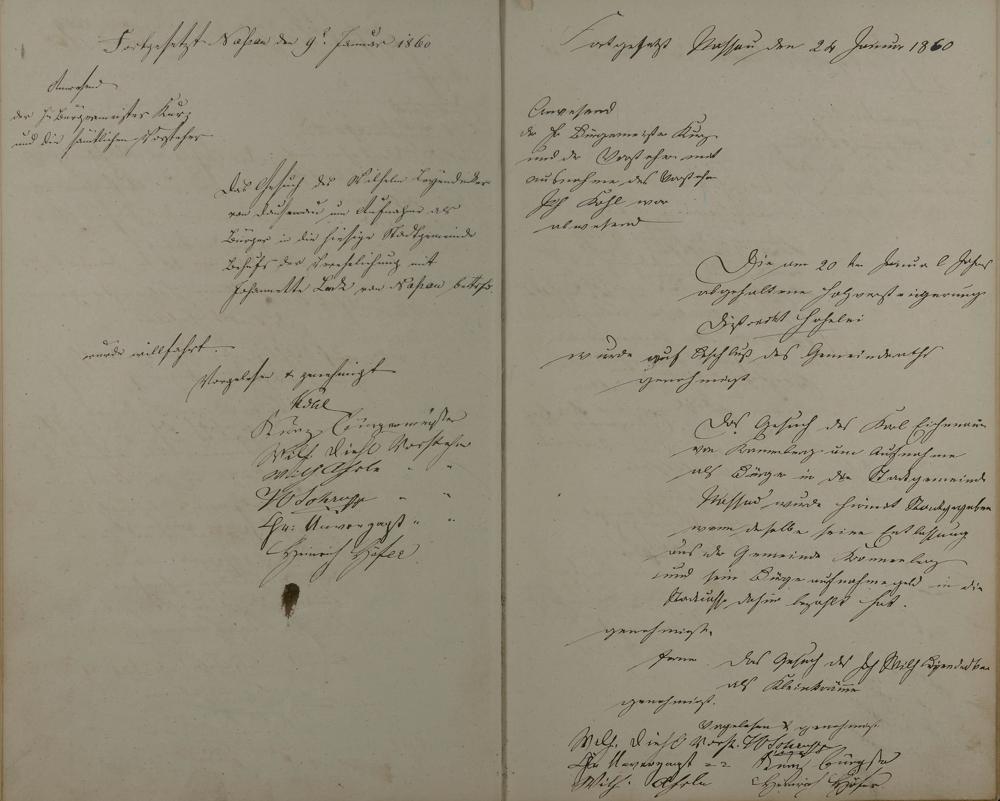 Fortgesetzt Nassau den 9t. Januar 1860
Anwesend
der Hr Bürgermeister Kurz
und die sämtlichen Vorsteher
Das Gesuch des Wilhelm
von Dausenau um Aufnahme als
Bürger in die hiesige Stadtgemeinde
behufs der Verehelichung mit
Johannette von Nassau betrfd.
wurde willfahrt.
Vorgelesen & genehmigt
Kurz Bürgermeister
Wilh. Diehl Vorsteher
Wilh
Chr: Unverzagt " "
Heinrich Höfer
Fortgesetzt Nassau den 24 Januar 1860
Anwesend
der Hr Bürgermeister Kurz
und der Vorsteher mit
ausnahme des Vorsteher
Kohl war
abwesend
Die am 20ten Januar l Jahres
abgehaltene Holzversteigerung
District Hohelei
wurde auf Beschluß des Gemeinderaths
genehmigt
Das Gesuch des Karl
von um Aufnahme
als Bürger in die Stadtgemeinde
Nassau wurde hiermit Stadtgegeben
wenn deselbe seine Entlassung
aus der Gemeinde
und sein Bürgeraufnahmegeld in die
Stadtcasse dahier bezahlt hat.
genehmigt.
ferner Das Gesuch des Wilh
als Kleinkrämer
genehmigt.
Vorgelesen & genehmigt
Wilh. Diehl Vorst.
Chr Unverzagt Kurz Bürgstr
Wilh. Heinrich Höfer